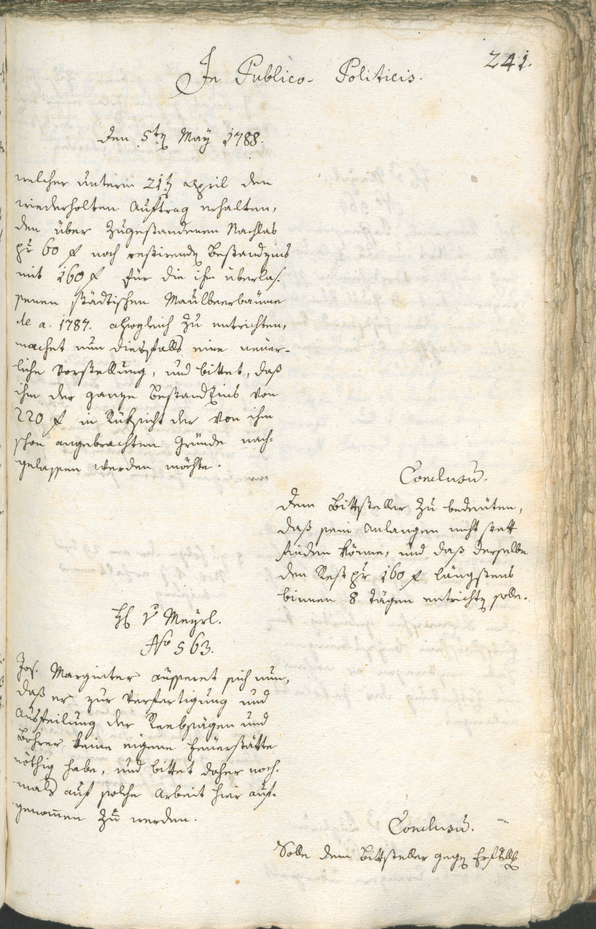 241.
In Publico-Politicis.
den 5ten May 1788.
welcher unterm 21ten april den
wiederholten Auftrag erhalten,
den über zugestandenen Nachlas
pr 60 f noch restirenden Bestandzins
mit 160 f für die ihm überlas-
senen städtischen Maulbeerbäume
de a. 1787. alsogleich zu entrichten,
machet nun diesfalls eine neuer-
liche Vorstellung, und bittet, daß
ihm der ganze Bestandzins von
220 f in Rüksicht der von ihm
schon angebrachten Gründe nach-
gelassen werden möchte.
Conclusum.
dem Bittsteller zu bedeuten,
daß sein Anlangen nicht statt
finden könne, und daß derselbe
den Rest pr 160 f längstens
binnen 8 Tägen entrichten solle.
H v Meyrl.
No 563.
Jos. Marginter äusseret sich nun,
daß er zur Verfertigung und
Ausfeilung der Rebsägen und
Bohrer keine eigene Feuerstätte
nöthig habe, und bittet daher noch-
mals auf solche Arbeit hier auf-
genommen zu werden.
Conclusum.
Solle dem Bittsteller gegen